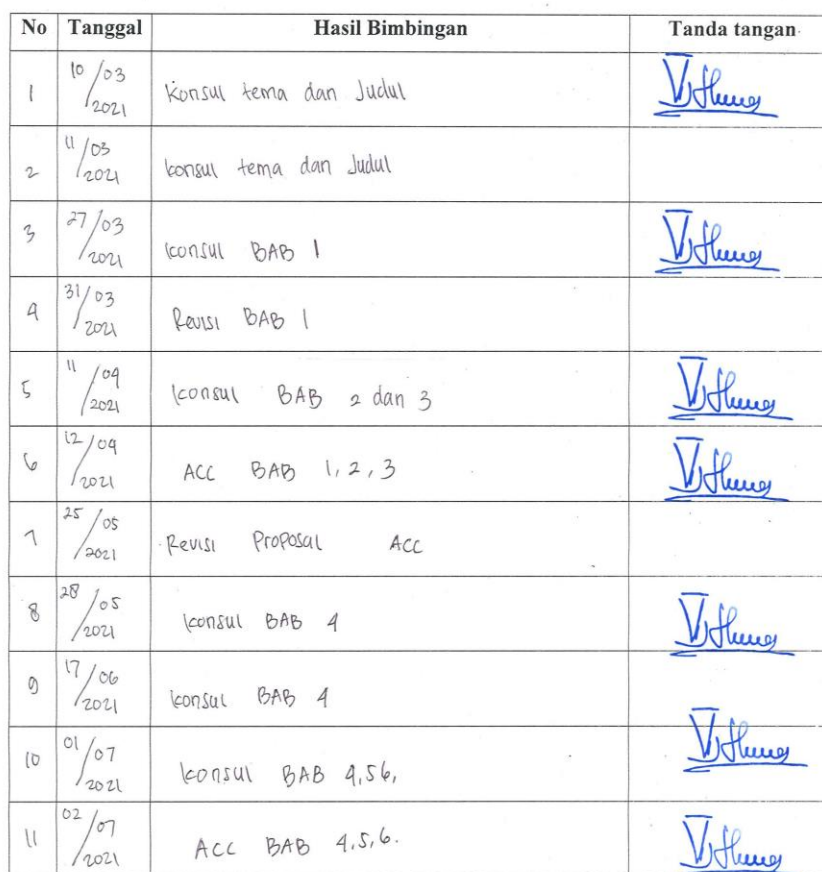 No Tanggal Hasil Bimbingan Tanda tangan
1 10/03/2021 Konsul tema dan Judul
2 11/03/2021 konsul tema dan Judul
3 27/03/2021 konsul BAB 1
4 31/03/2021 Revisi BAB 1
5 11/04/2021 konsul BAB 2 dan 3
6 12/04/2021 ACC BAB 1, 2, 3
7 25/05/2021 Revisi Proposal ACC
8 28/05/2021 konsul BAB 4
9 17/06/2021 konsul BAB 4
10 01/07/2021 konsul BAB 4,5 6,
11 02/07/2021 ACC BAB 4,5,6.